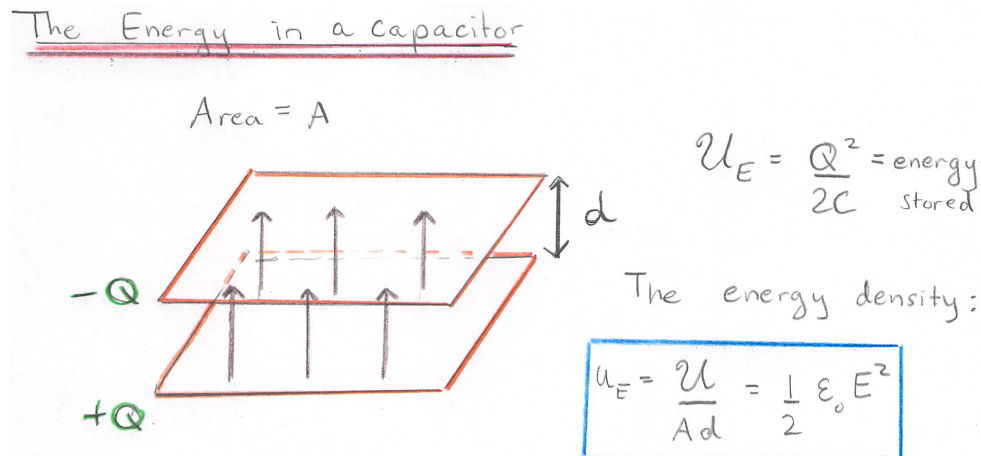 The Energy in a capacitor
Area = A
U_E = Q²/2C = energy stored
d
-Q
The energy density:
+Q
u_E = U/Ad = 1/2 ε₀E²